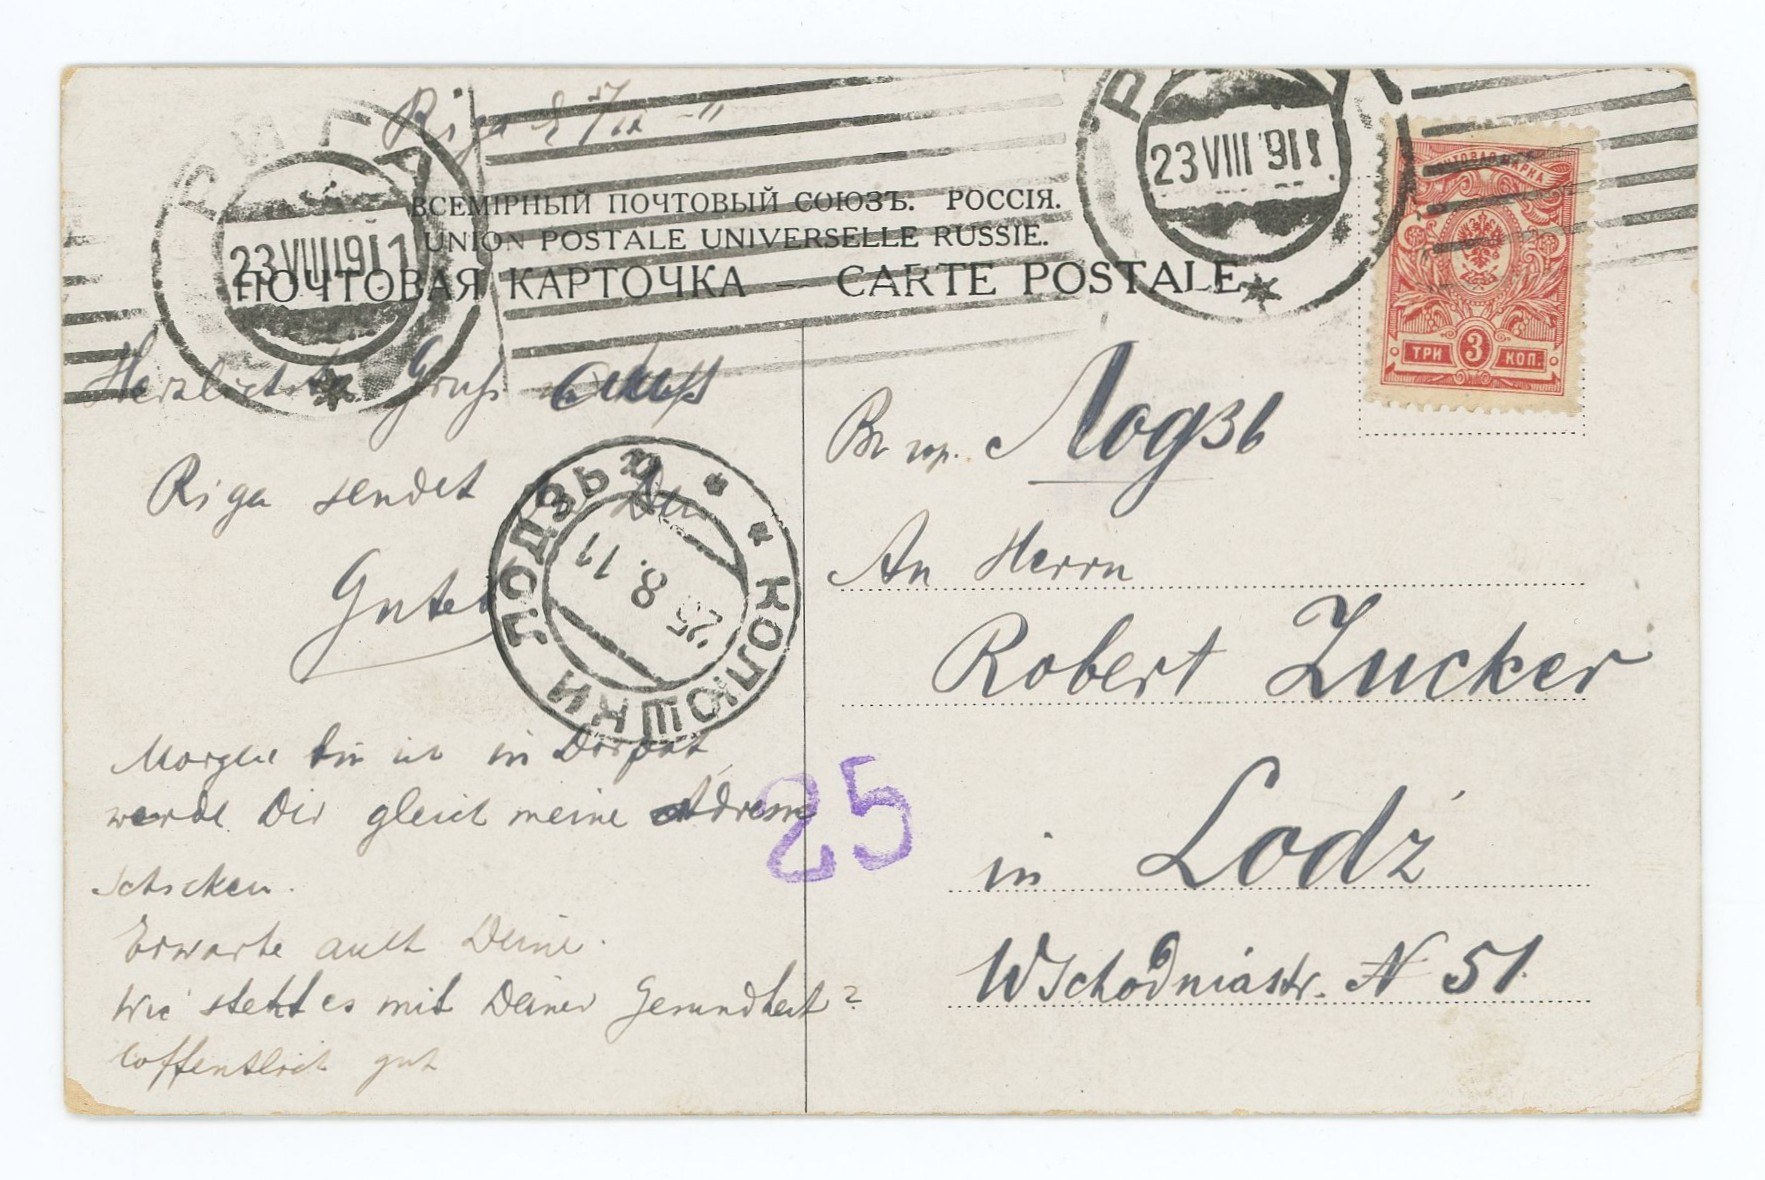 Riga
РИГА
23 VIII 911
23 VIII 911
ПОЧТОВАЯ МАРКА
ТРИ 3 КОП.
ВСЕМІРНЫЙ ПОЧТОВЫЙ СОЮЗЪ. РОССІЯ.
UNION POSTALE UNIVERSELLE RUSSIE.
ПОЧТОВАЯ КАРТОЧКА — CARTE POSTALE
Herzlichsten Gruß aus
Riga sendet Dir Dein
Gustel
Morgen bin ich in Dorpat,
werde Dir gleich meine Adresse
schicken.
Erwarte auch Deine.
Wie steht es mit Deiner Gesundheit?
hoffentlich gut
КОЛЮШКИ ЛОДЗЬ
25 8. 11
25
Въ гор. Лодзь
An Herrn
Robert Zucker
in Lodź
Wschodniastr. N 51.